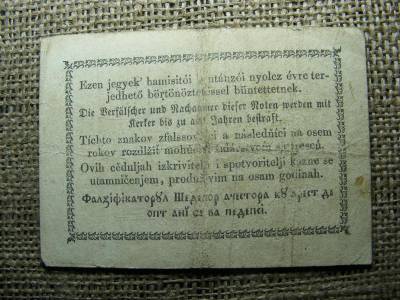 Ezen jegyek' hamisítói utánzói nyolcz évre ter-
jedhető börtönöztetéssel büntettetnek.
Die Verfälscher und Nachahmer dieser Noten werden mit
Kerker bis zu acht Jahren bestraft.
Tíchto znakov zfalšovníci a následníci na osem
rokov rozdĺžiť
Ovih ceduljah izkrivitelji i spotvoritelji kazne se
utamničenjem, produživim na osam godinah.
Фалзіфікаторꙋл Шеде кꙋ арест де
опт ані се ва педепсі.